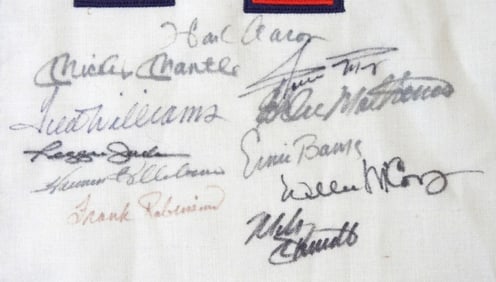 Hank Aaron
Mickey Mantle
Willie Mays
Ted Williams
Eddie Mathews
Reggie Jackson
Ernie Banks
Harmon Killebrew
Willie McCovey
Frank Robinson
Mike Schmidt